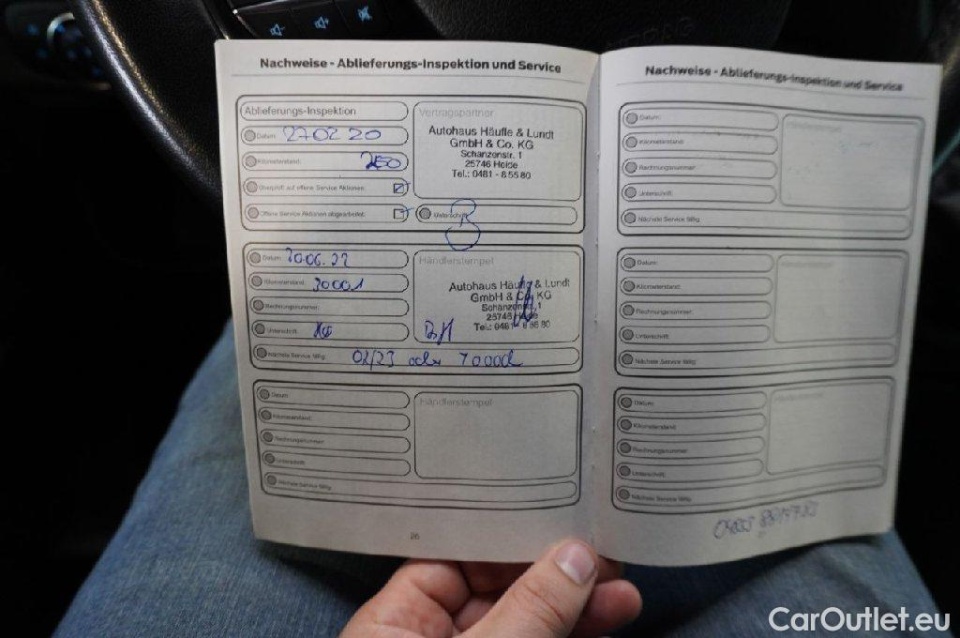 Nachweise - Ablieferungs-Inspektion und Service
Ablieferungs-Inspektion
Datum: 27 02 20
Kilometerstand: 250
Überprüft auf offene Service Aktionen:
Offene Service Aktionen abgearbeitet:
Vertragspartner
Autohaus Häufle & Lundt
GmbH & Co. KG
Schanzenstr. 1
25746 Heide
Tel.: 0481 - 8 55 80
Unterschrift
Datum:
Kilometerstand: 30001
Rechnungsnummer:
Unterschrift:
Händlerstempel
Autohaus Häufle & Lundt
GmbH & Co. KG
Schanzenstr. 1
25746 Heide
Tel.: 0481 - 8 55 80
Nächste Service fällig: 02/23 oder
Datum:
Kilometerstand:
Rechnungsnummer:
Unterschrift:
Nächste Service fällig:
Händlerstempel
26
Nachweise - Ablieferungs-Inspektion und Service
Datum:
Kilometerstand:
Rechnungsnummer:
Unterschrift:
Nächste Service fällig:
Datum:
Kilometerstand:
Rechnungsnummer:
Unterschrift:
Nächste Service fällig:
Datum:
Kilometerstand:
Rechnungsnummer:
Unterschrift:
Nächste Service fällig:
CarOutlet.eu